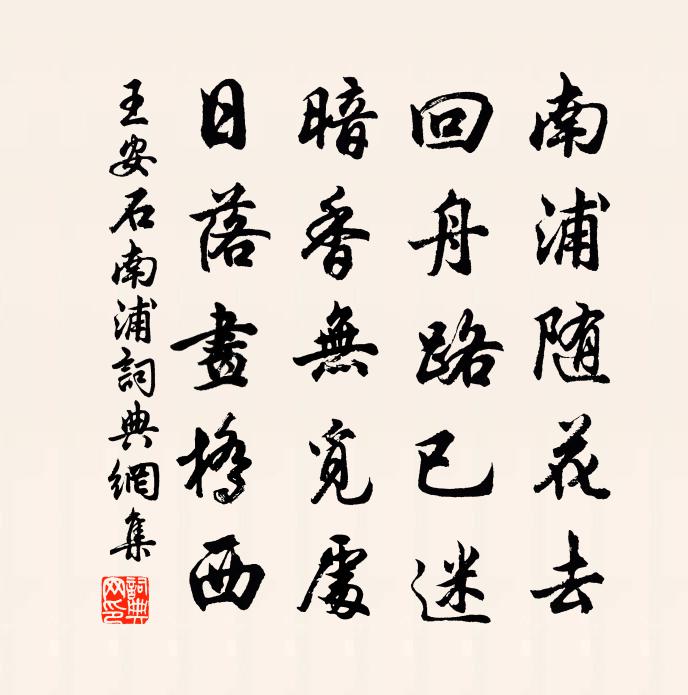 南浦随花去
回舟路已迷
暗香無覓處
日落畫橋西
王安石南浦詞典網集
詞典網印